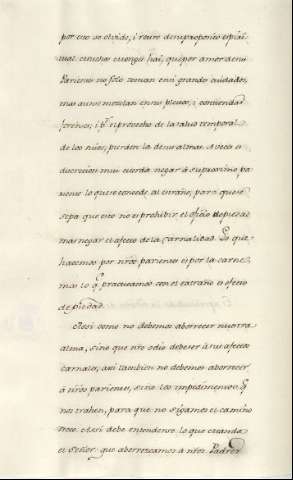 por esso se olvido, i retiro de su proposito espiri-
tual. Muchos monges hai, que por amor de sus
Parientes no solo toman en si grandes cuidados,
mas aun se mezclan en sus pleitos, i contiendas
forenses; i por el provecho de la salud temporal
de los suios, pierden la de sus almas. A veces es
discrecion mui cuerda negar à su proximo pa
riente lo que se concede al extraño; para que se
sepa que esto no es prohibir el oficio de piedad
mas negar el afecto de la carnalidad. Lo que
hacemos por nros parientes es por la carne,
mas lo q practicamos con el extraño es efecto
de piedad.
Assi como no debemos aborrecer nuestra
alma, sino que nro odio debe ser à sus afectos
carnales, assi tambien no debemos aborrecer
à nros parientes, sino los impedimentos q
nos trahen, para que no sigamos el camino
recto. Assi debe entenderse lo que manda
el Señor que aborrezcamos à nros Padres